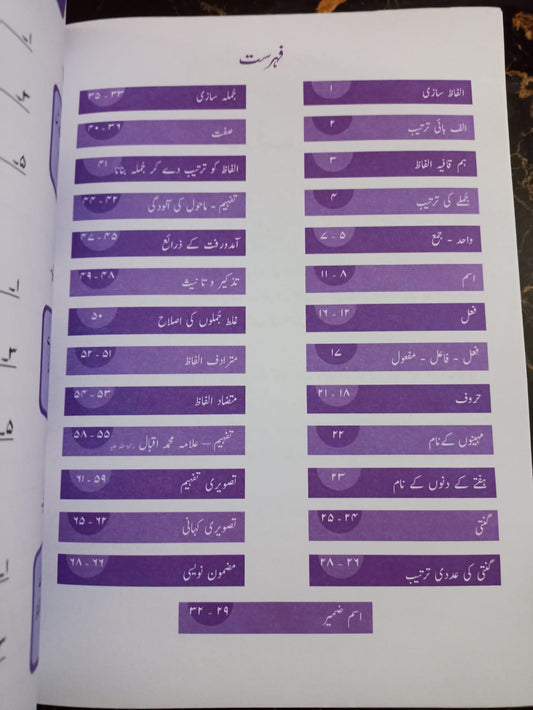 فہرست
الفاظ سازی ۱
الف بائی ترتیب ۲
ہم قافیہ الفاظ ۳
جملے کی ترتیب ۴
واحد - جمع ۵ - ۷
اسم ۸ - ۱۱
فعل ۱۲ - ۱۶
فعل - فاعل - مفعول ۱۷
حروف ۱۸ - ۲۱
مہینوں کے نام ۲۲
ہفتے کے دنوں کے نام ۲۳
گنتی ۲۴ - ۲۵
گنتی کی عددی ترتیب ۲۶ - ۲۸
اسم ضمیر ۲۹ - ۳۲
جملہ سازی ۳۳ - ۳۵
صفت ۳۶ - ۴۰
الفاظ کو ترتیب دے کر جملہ بنانا ۴۱
تفہیم - ماحول کی آلودگی ۴۲ - ۴۴
آمدورفت کے ذرائع ۴۵ - ۴۷
تذکیر و تانیث ۴۸ - ۴۹
غلط جملوں کی اصلاح ۵۰
مترادف الفاظ ۵۱ - ۵۲
متضاد الفاظ ۵۳ - ۵۴
تفہیم – علامہ محمد اقبال ۵۵ - ۵۸
تصویری تفہیم ۵۹ - ۶۱
تصویری کہانی ۶۲ - ۶۵
مضمون نویسی ۶۶ - ۶۸